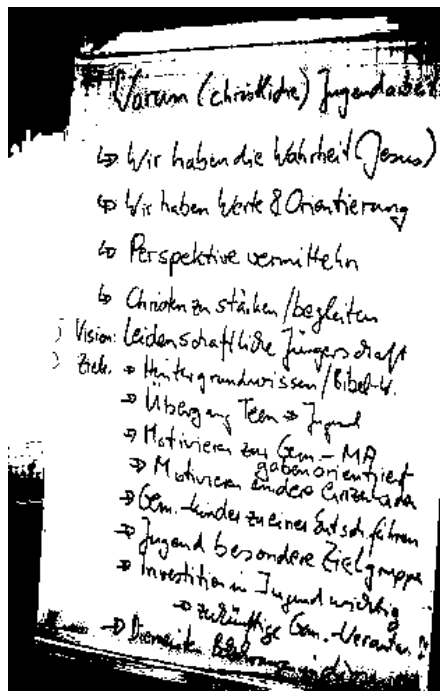 Warum (christliche) Jugendarbeit
↳ Wir haben die Wahrheit (Jesus)
↳ Wir haben Werte & Orientierung
↳ Perspektive vermitteln
↳ Christen zu stärken / begleiten
Vision: Leidenschaftliche Jüngerschaft
Ziele: ⇒ Hintergrundwissen / Bibel-W.
⇒ Übergang Teen ⇒ Jugend
⇒ Motivieren zur Gem.-MA
gabenorientiert
⇒ Motivieren andere einzuladen
⇒ Gem.-kinder zu einer Entsch. führen
⇒ Jugend besondere Zielgruppe
⇒ Investition in Jugend wichtig
⇒ zukünftige Gem.-Verantw.
⇒ Die meisten